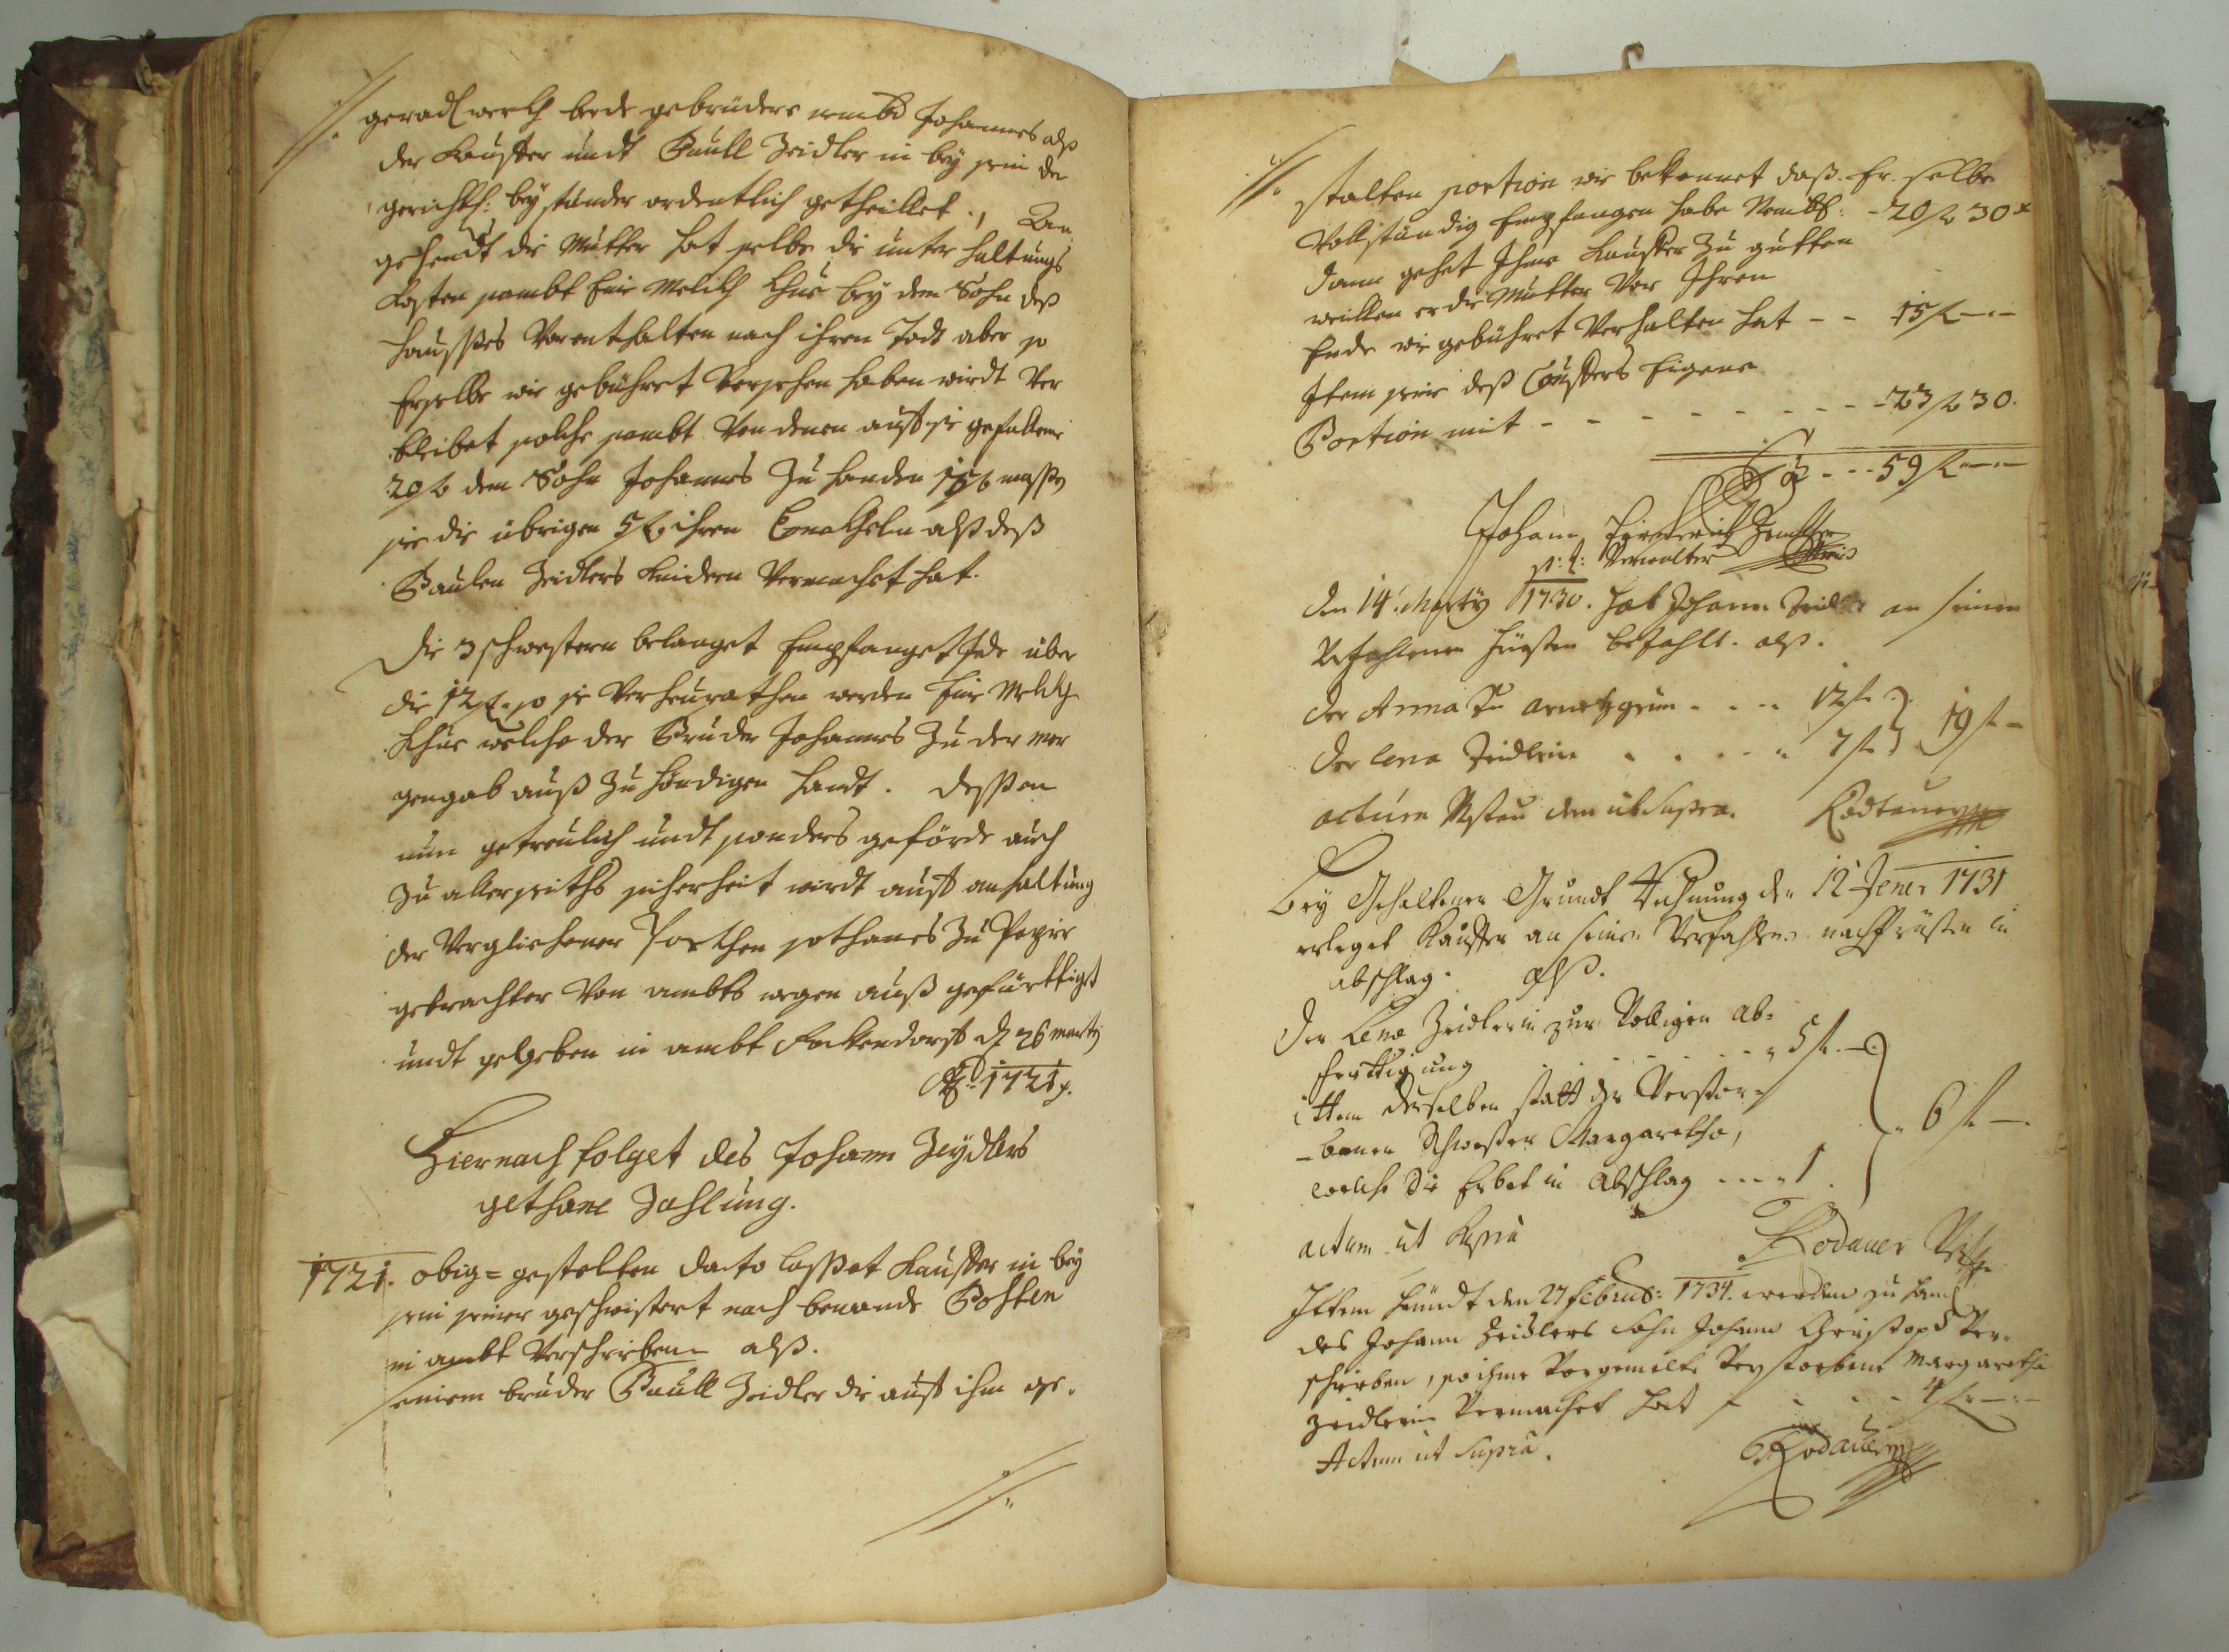 gerad welch beede gebrüdere nembl Johannes alß
der Kauffer undt Paull Zeidler in bey sein der
gerichtl: beyständer ordentlich getheillet. An
gehendt die Mutter hat selbe die unter haltungs
Kosten sambt Eine Melckh Khue bey dem Sohn deß
haußes Vorenthalten nach ihren Todt aber so
Er selbe wie gebühret Versehen haben wirdt Ver
bleibet solche sambt Von denen auff sie gefallene
20 f dem Sohn Johannes Zu handen massen
sie die übrigen 5 f ihren alß deß
Paulen Zeidlers Kindern Vermachet hat.
Die 3 schwestern belanget Empfanget Jede über
die 12 f. so sie Verheurathen werden Eine Melckh
Khue welche der Bruder Johannes Zu der mor
gengab auß Zu händigen handt. Dessen
nun getreulich undt sonders geförde auch
Zu allerseiths sicherheit wirdt auff anhaltung
der Verglichener Parthen sothanes Zu Papier
gebrachter Von ambts wegen auß gefürttiget
undt geschehen in ambt Fockendorff d 26 marty
Ao 1721.
Hiernach folget des Johann Zeydlers
gethane Zahlung.
1721. obig= gestelten dato lasset Kauffer in bey
sein seiner geschwistert nach benande Posten
in ambt Verschreiben alß.
seinem bruder Paull Zeidler die auff ihm ge=
stalten portion wie bekennet daß Er selbe
Vollständig Empfangen habe Nembl: - 20 f 30 x
dann gehet Ihme Kauffer Zu gutten
weillen er die Mutter Vor Ihren
Ende wie gebühret Verhalten hat - - 15 f --
Item seine deß Kauffers Eigene
Portion mit - - - - - - - 23 f 30.
Sa - - - 59 f --
Johann Friederich
p: t: Verwalter
den 14. Marty 1730. hat Johann Zeidler an seinen
Verfahlenen früsten bezahlt. alß.
Der Anna Zu - - - 12 f
Der Lena Zeidlerin - - - - 7 f } 19 f -
actum den ut supra. Rodauer
Bey Gehaltener Grundt Rechnung den 12 Jener 1731
erleget Kauffer an seinen Verfahlenen nachfrüsten in
abschlag. alß.
Der Lena Zeidlerin zur Völligen ab=
ferttigung - - - - - 5 f. -
ittem derselben statt der Verstor=
-benen Schwester Margaretha,
welche die Erbet in abschlag - - - 1. } 6 f -
actum ut supra Rodauer
Ittem heündt den 27 Februar: 1734. werden zu handen
des Johann Zeidlers Sohn Johann Christoph Ver=
schrieben, so ihme Vorgemelte Verstorbene Margaretha
Zeidlerin Vermachet hat - - - - 4 f --
Actum ut supra. Rodauer